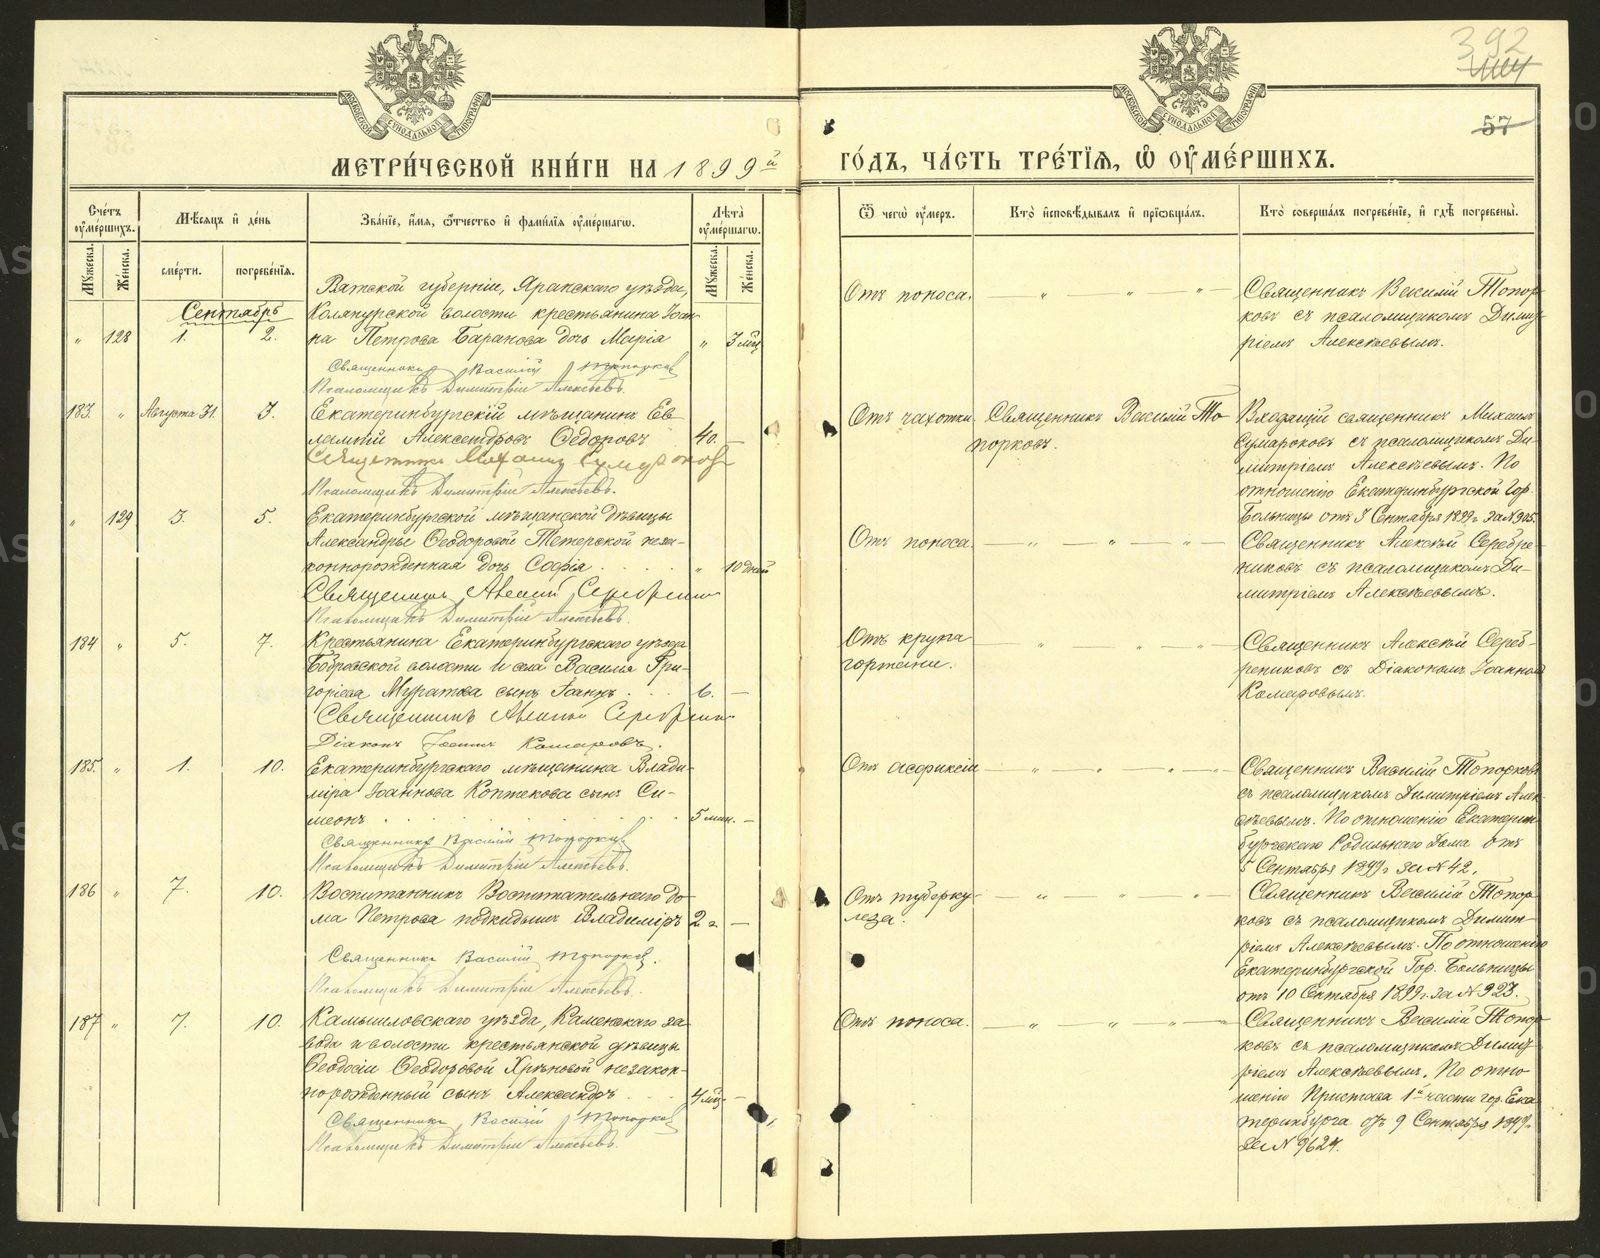 392
57
МОСКОВСКОЙ СѴНОДАЛЬНОЙ ТИПОГРАФІИ
МОСКОВСКОЙ СѴНОДАЛЬНОЙ ТИПОГРАФІИ
МЕТРИ́ЧЕСКОЙ КНИ́ГИ НА 1899й
ГО́ДЪ, ЧА́СТЬ ТРЕ́ТІѦ, Ѡ ОУМЕ́РШИХЪ.
Счетъ оумершихъ.
Мꙋжеска.
Женска.
Мѣсяцъ и день
смерти.
погребенїя.
Званїе, имя, отчество и фамилїя оумершагѡ.
Лѣта оумершагѡ.
Мꙋжеска.
Женска.
Ѿ чегѡ оумеръ.
Кто исповѣдывалъ и прїѡбщалъ.
Кто совершалъ погребенїе, и гдѣ погребены.
Сентябрь
" 128 1. 2.
Вятской губерніи, Яранскаго уѣзда,
волости крестьянина Іоан-
на Петрова Баранова дочь Марія " 3 мѣс
Священникъ Василій Топорковъ
Псаломщикъ Димитрій Алексѣевъ.
Отъ поноса. — " — " — " —
Священникъ Василій Топор-
ковъ съ псаломщикомъ Димит-
ріемъ Алексѣевымъ.
183. " Августа 31. 3.
Екатеринбургскій мѣщанинъ Ев-
Александровъ Ѳедоровъ 40. —
Священникъ Михаилъ Сумароковъ
Псаломщикъ Димитрій Алексѣевъ.
Отъ чахотки.
Священникъ Василій То-
порковъ.
Входящій священникъ Михаилъ
Сумароковъ съ псаломщикомъ Ди-
митріемъ Алексѣевымъ. По
отношенію Екатеринбургской Гор.
Больницы отъ 3 Сентября 1899 г. за № 905.
" 129 3. 5.
Екатеринбургской мѣщанской дѣвицы
Александры Ѳеодоровой Тетерской неза-
коннорожденная дочь Софія . . . . " 10 дней
Священникъ Алексій Серебрениковъ
Псаломщикъ Димитрій Алексѣевъ.
Отъ поноса. — " — " — " —
Священникъ Алексѣй Серебре-
никовъ съ псаломщикомъ Ди-
митріемъ Алексѣевымъ.
184 " 5. 7.
Крестьянина Екатеринбургскаго уѣзда
Бобровской волости и села Василія Гри-
горіева Муратова сынъ Іоаннъ . . . 6. —
Священникъ Алексій Серебрениковъ
Діаконъ Іоаннъ Комаровъ.
Отъ крупа
гортани.
— " — " — " —
Священникъ Алексѣй Сереб-
рениковъ съ Діакономъ Іоанномъ
Комаровымъ.
185. " 1. 10.
Екатеринбургскаго мѣщанина Влади-
міра Іоаннова Коптекова сынъ Си-
меонъ . . . . . . . . 5 мин. —
Священникъ Василій Топорковъ
Псаломщикъ Димитрій Алексѣевъ.
Отъ асфиксіи — " — " — " —
Священникъ Василій Топорковъ
съ псаломщикомъ Димитріемъ Алек-
сѣевымъ. По отношенію Екатерин-
бургскаго Родильнаго Дома отъ
5 Сентября 1899 г. за № 42.
186 " 7. 10.
Воспитанникъ Воспитательнаго до-
ма Петрова подкидышъ Владиміръ 2 г. —
Священникъ Василій Топорковъ.
Псаломщикъ Димитрій Алексѣевъ.
Отъ туберку-
леза.
— " — " — " —
Священникъ Василій Топор-
ковъ съ псаломщикомъ Димит-
ріемъ Алексѣевымъ. По отношенію
Екатеринбургской Гор. Больницы
отъ 10 Сентября 1899 г. за № 923.
187 " 7. 10.
Камышловскаго уѣзда, Каменскаго за-
вода и волости крестьянской дѣвицы
Ѳеодосіи Ѳеодоровой Хрѣновой незакон-
норожденный сынъ Александръ . . . 4 мѣс —
Священникъ Василій Топорковъ
Псаломщикъ Димитрій Алексѣевъ.
Отъ поноса. — " — " — " —
Священникъ Василій Топор-
ковъ съ псаломщикомъ Димит-
ріемъ Алексѣевымъ. По отно-
шенію Пристава 1й части гор. Ека-
теринбурга отъ 9 Сентября 1899 г.
за № 9624.